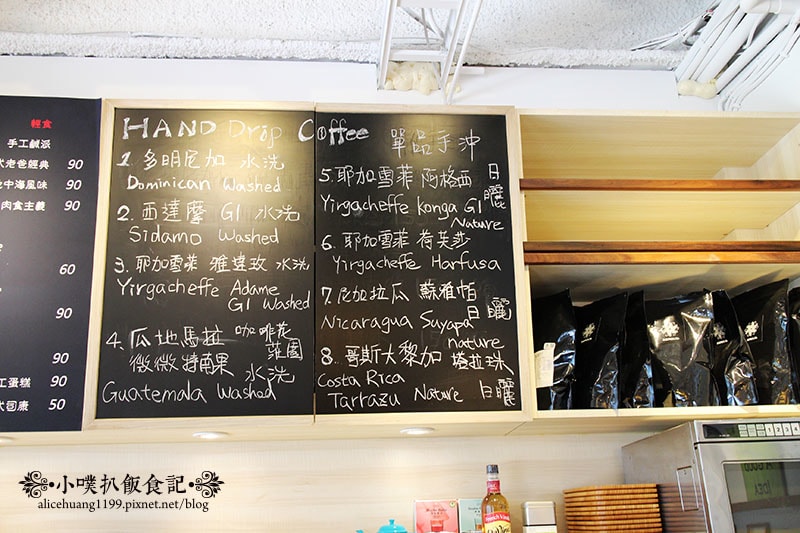 輕食
手工鹹派
式老爸經典 90
中海風味 90
肉食主義 90
60
90
90
工蛋糕 90
50
HAND Drip Coffee 單品手沖
1. 多明尼加 水洗
Dominican Washed
2. 西達摩 G1 水洗
Sidamo Washed
3. 耶加雪菲 雅達玫 水洗
Yirgacheffe Adame
G1 Washed
4. 瓜地馬拉 咖啡花
薇薇特南果 莊園
水洗
Guatemala Washed
5. 耶加雪菲 阿格西 日曬
Yirgacheffe Konga G1
Nature
6. 耶加雪菲 荷芙莎
Yirgacheffe Harfusa
7. 尼加拉瓜 蘇雅帕 日曬
Nicaragua Suyapa
nature
8. 哥斯大黎加 塔拉珠
Costa Rica
Tarrazu Nature 日曬
小噗扒飯食記
alicehuang1199.pixnet.net/blog